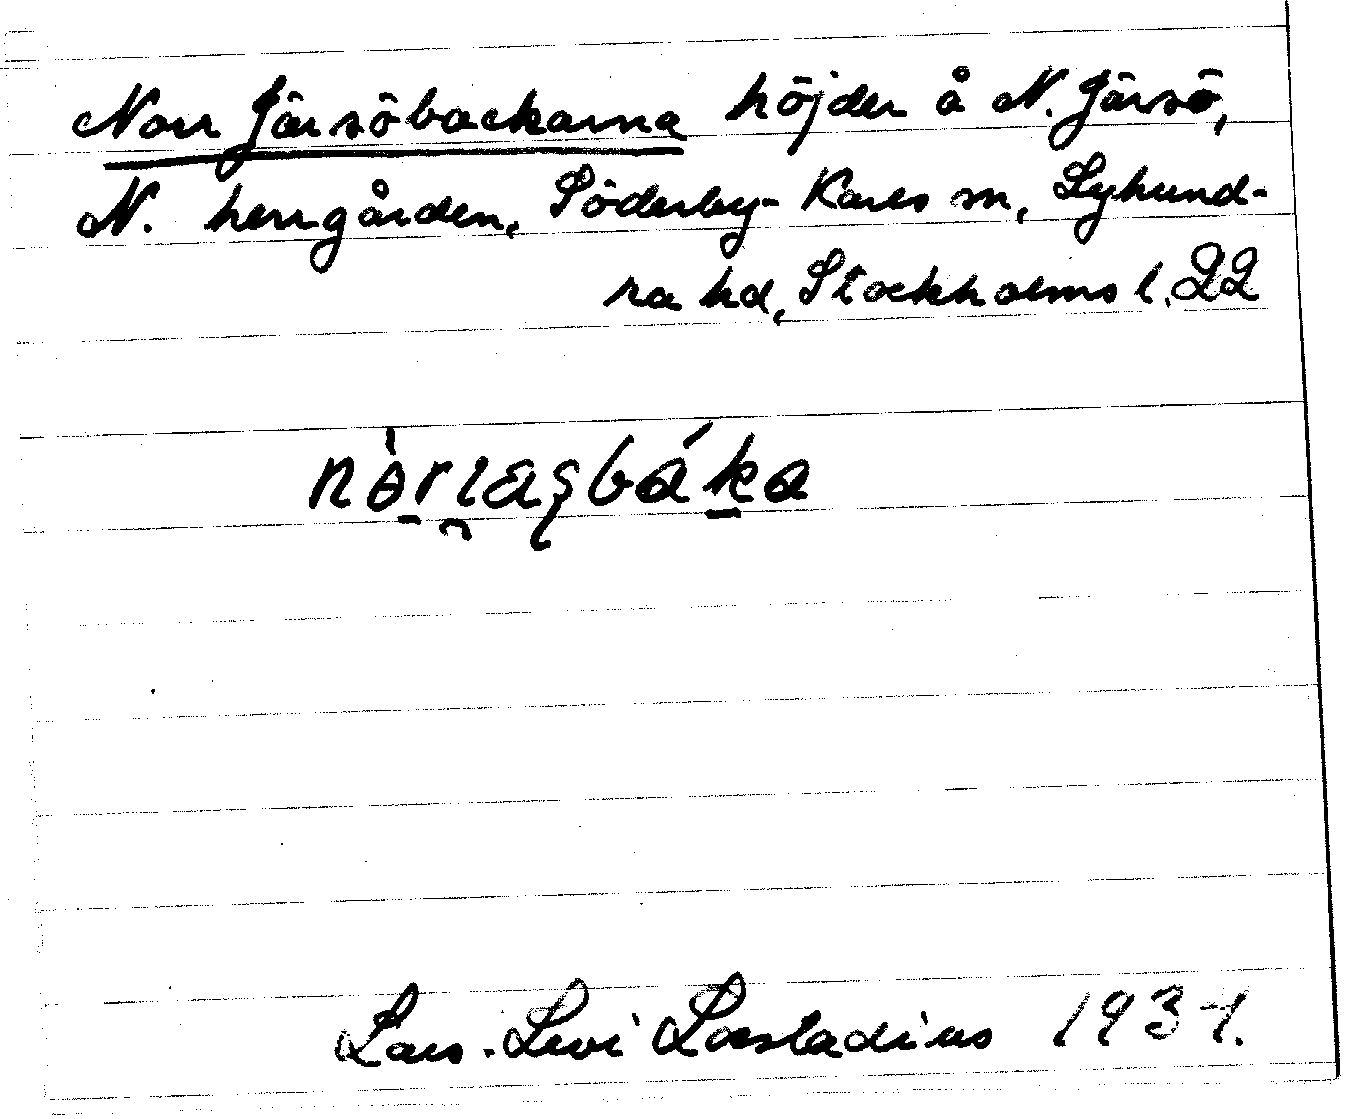 Norr Järsöbackarna höjder å N. Järsö,
N. herrgården, Söderby-Karls sn, Lyhund-
ra hd, Stockholms l. 22
Lars-Levi Læstadius 1934.